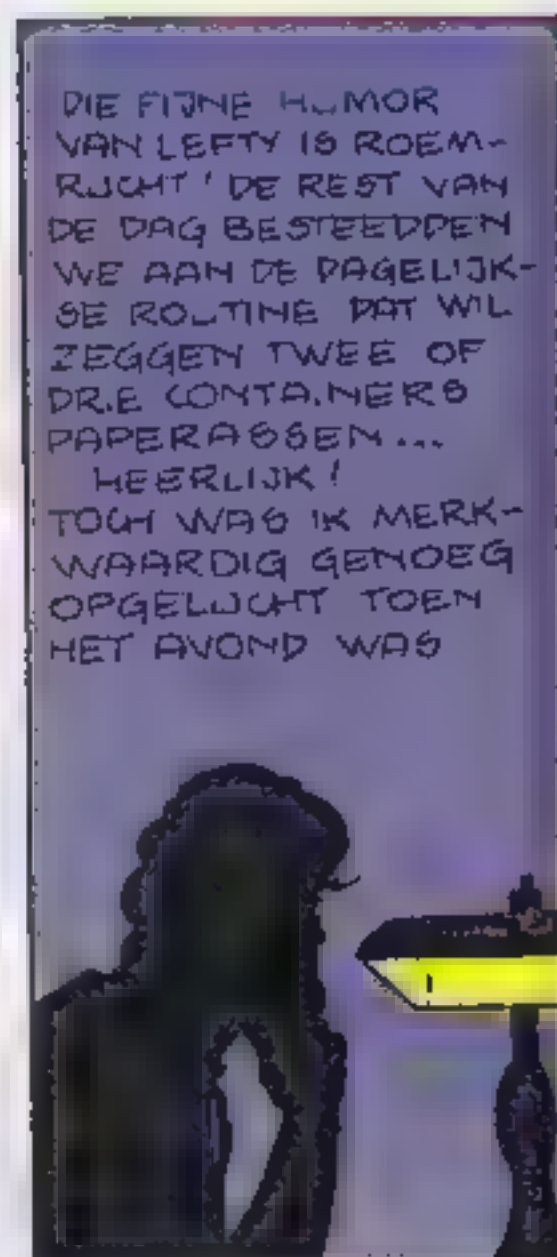 DIE FIJNE HUMOR
VAN LEFTY IS ROEM-
RUCHT! DE REST VAN
DE DAG BESTEEDDEN
WE AAN DE DAGELIJK-
SE ROUTINE DAT WIL
ZEGGEN TWEE OF
DRIE CONTAINERS
PAPERASSEN...
HEERLIJK!
TOCH WAS IK MERK-
WAARDIG GENOEG
OPGELUCHT TOEN
HET AVOND WAS